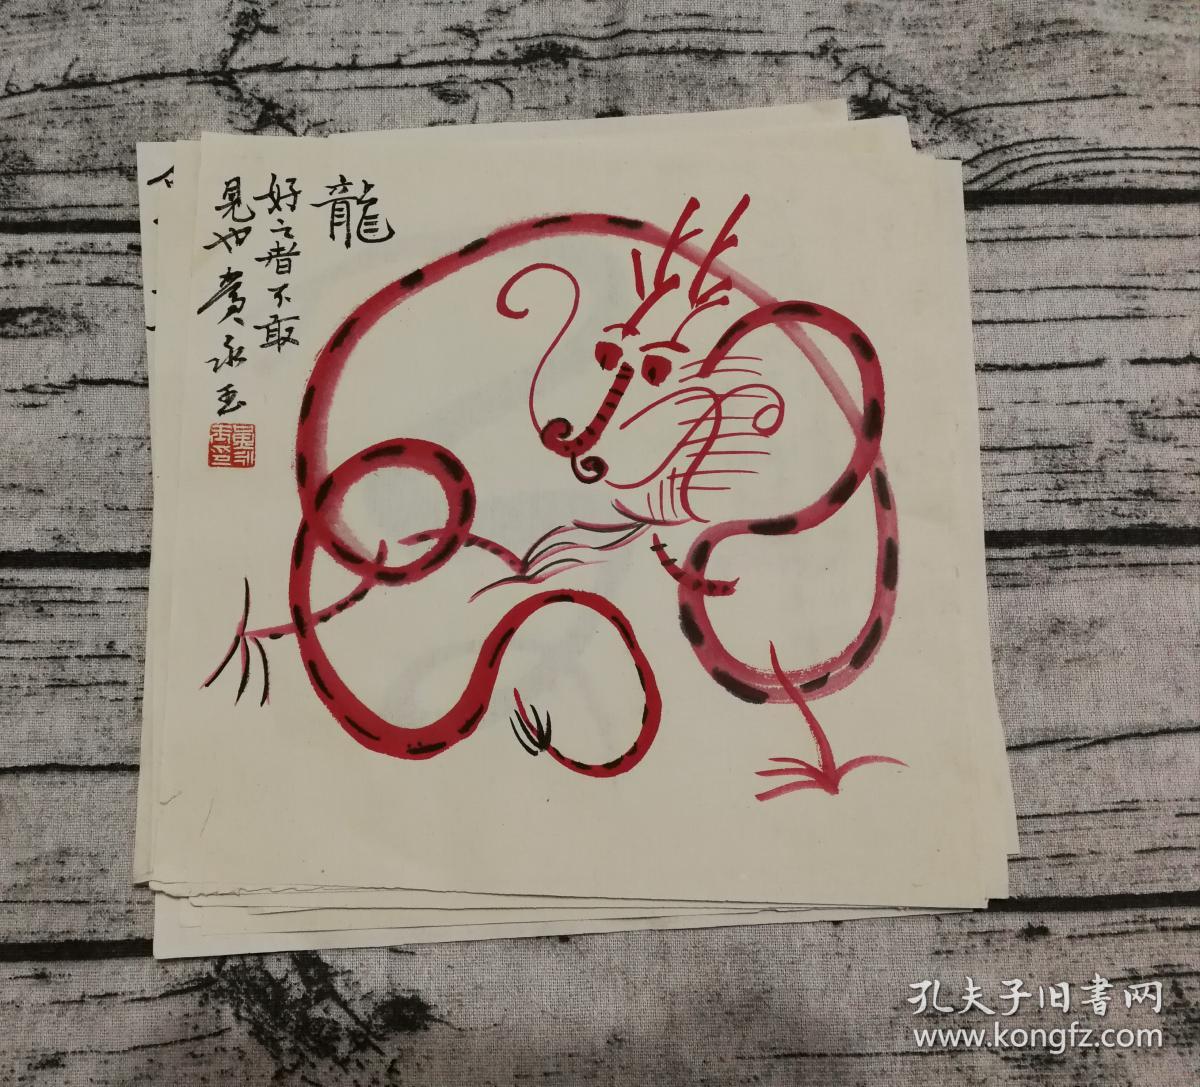 龍
好之者不敢
見也黄永玉
黄永玉印
孔夫子旧書网
www.kongfz.com